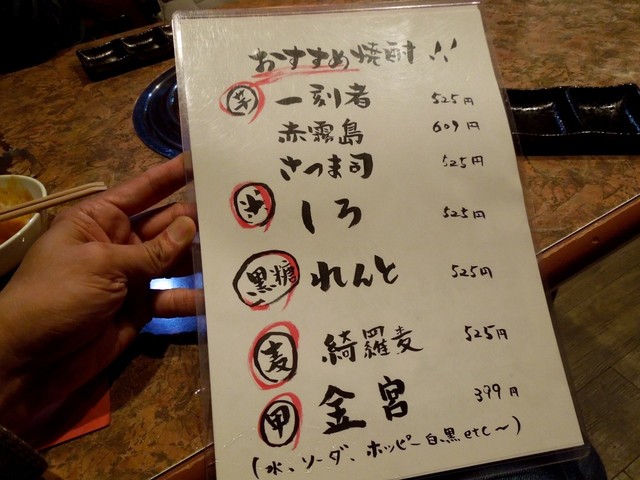 おすすめ焼酎!!
芋 一刻者 525円
赤霧島 609円
さつま司 525円
米 しろ 525円
黒糖 れんと 525円
麦 綺羅麦 525円
甲 金宮 399円
(水、ソーダ、ホッピー白黒etc～)